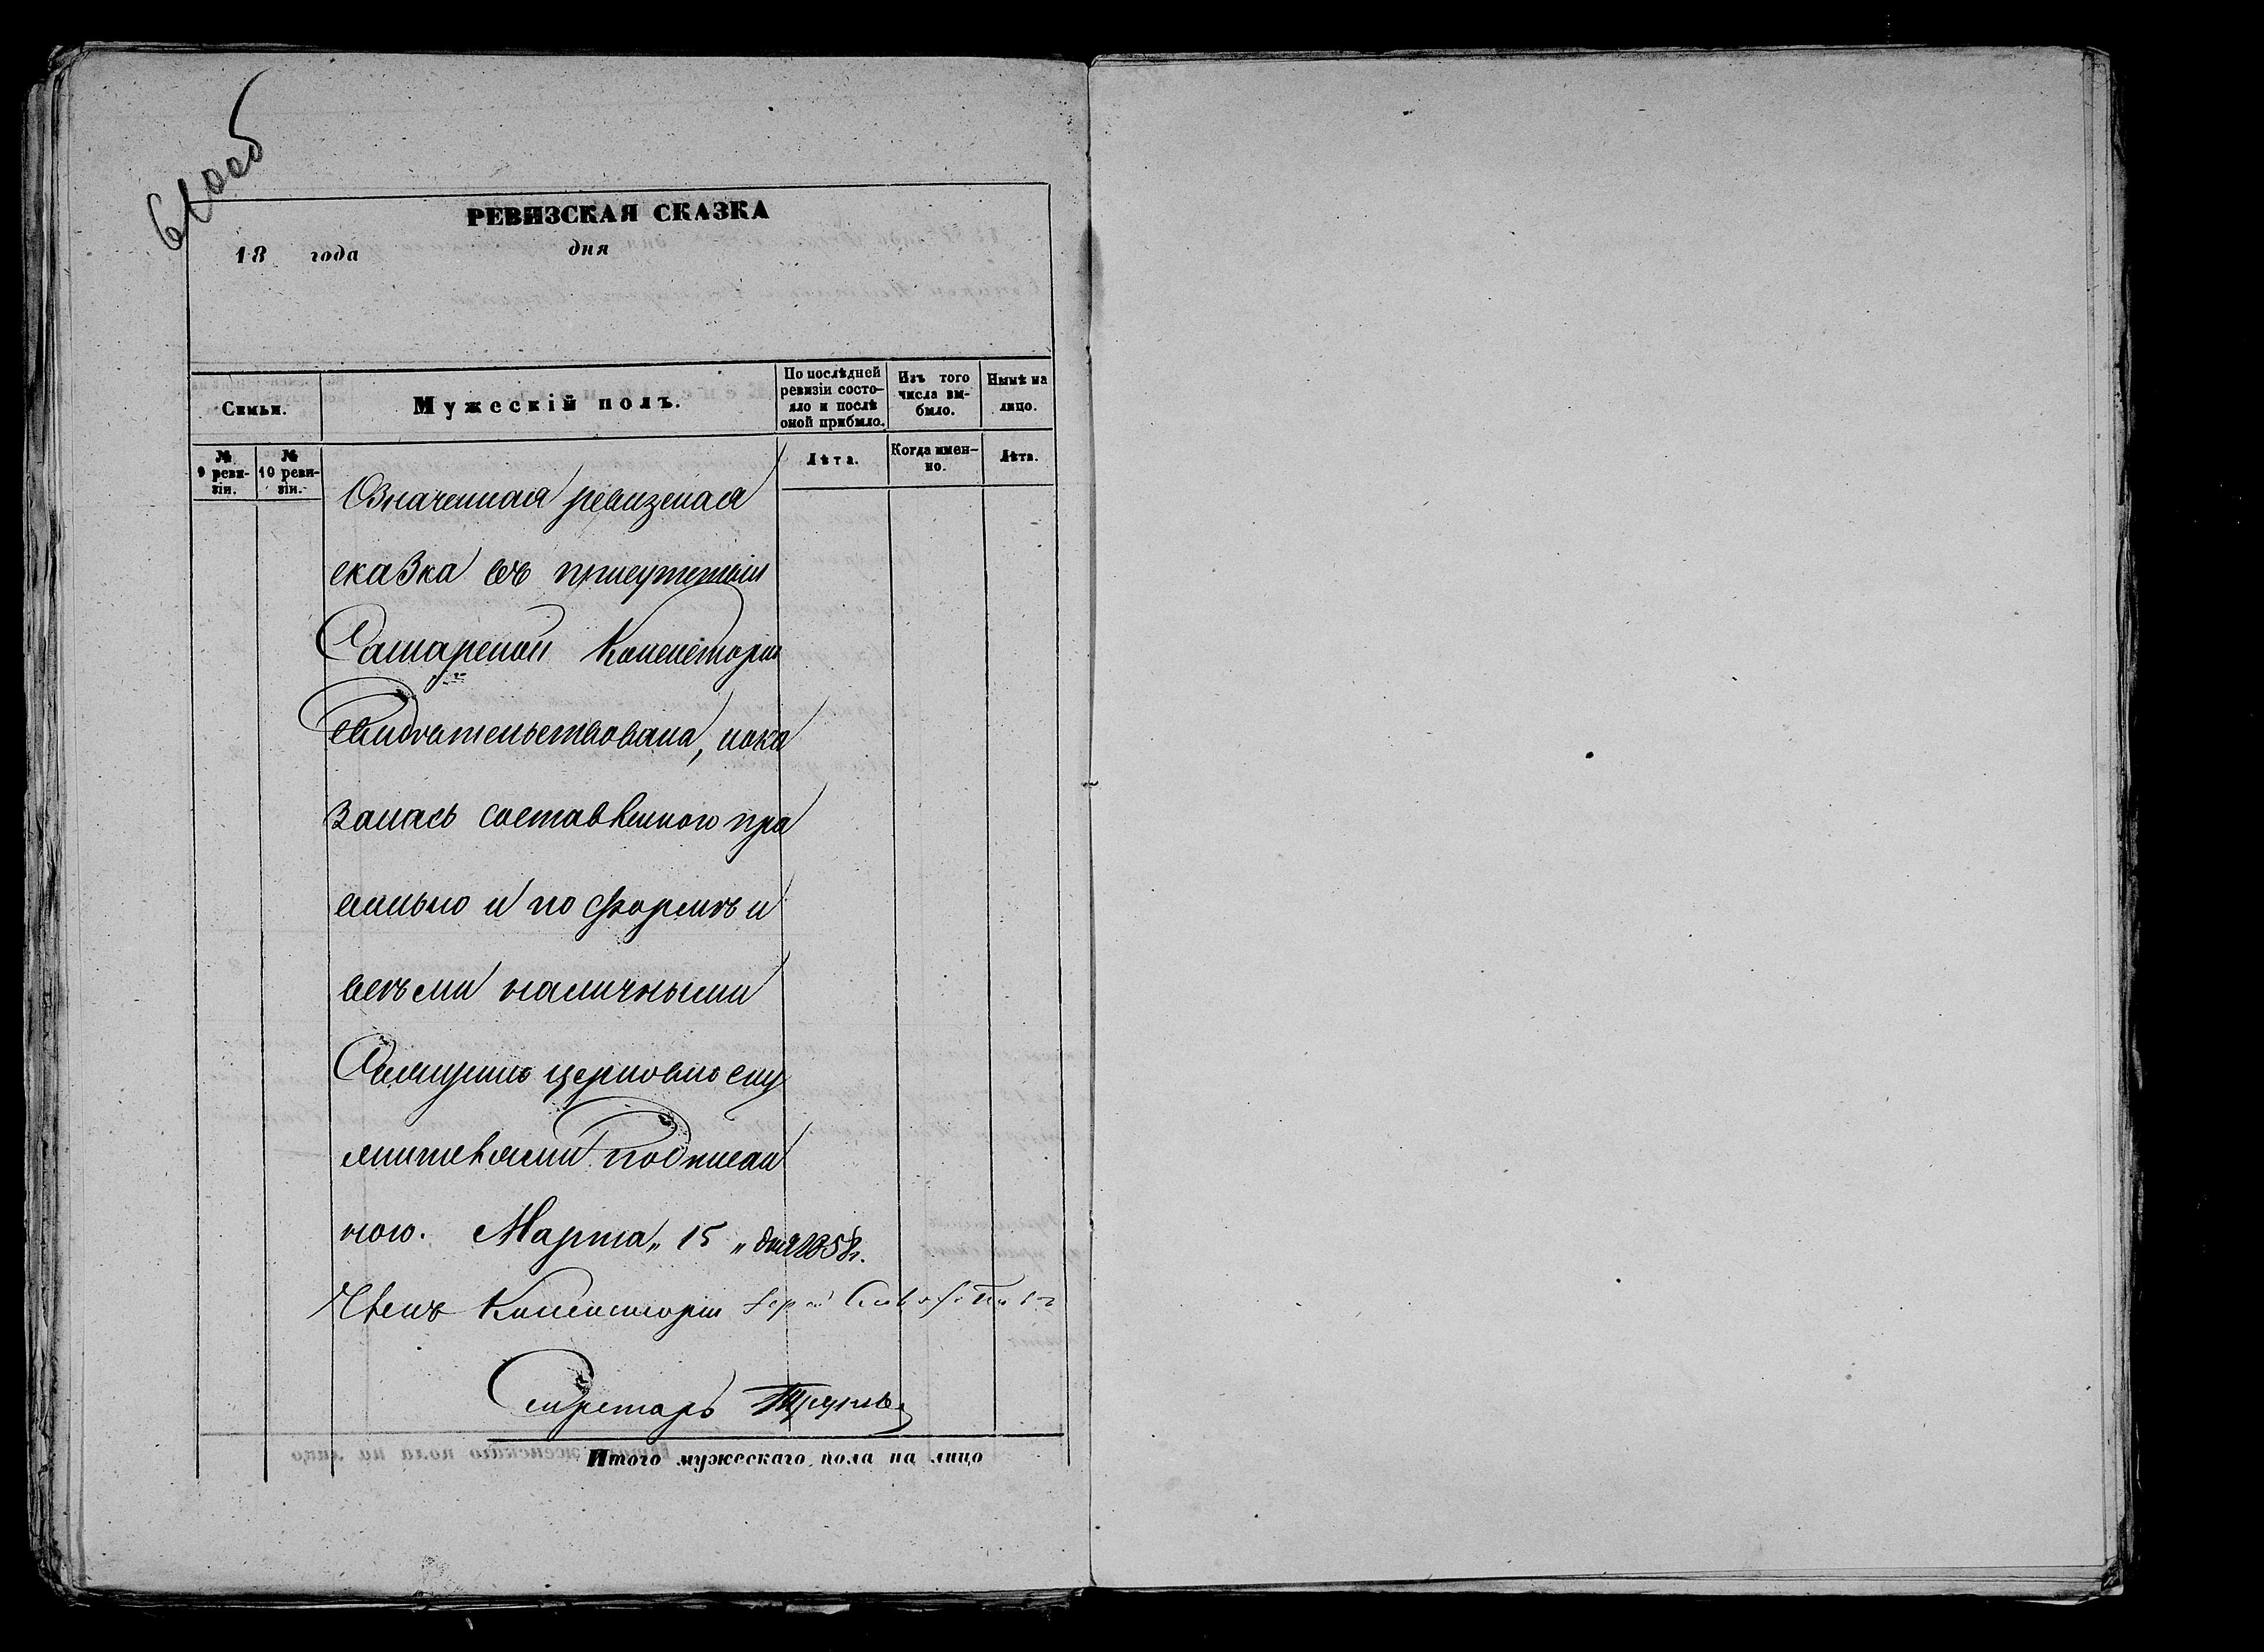 РЕВИЗСКАЯ СКАЗКА
18 года дня
Симьи.
Мужескій полъ.
По послѣдней ревизіи состо-
яло и послѣ оной прибыло.
Изъ того числа вы-
было.
Нынѣ на лицо.
№ 9 реви-
зіи.
№ 10 реви-
зіи.
Лѣта.
Когда имен-
но.
Лѣта.
Означенная ревизская
сказка въ присутствіи
Самарской Консисторіи
свидѣтельствована, пока
залась составленною пра
вильно и по формѣ и
всѣми наличными
церковно слу
жителями подписан
ною. Марта „ 15 „ дня 1858 г.
Членъ Консисторіи
Секретарь
Итого мужескаго пола на лицо